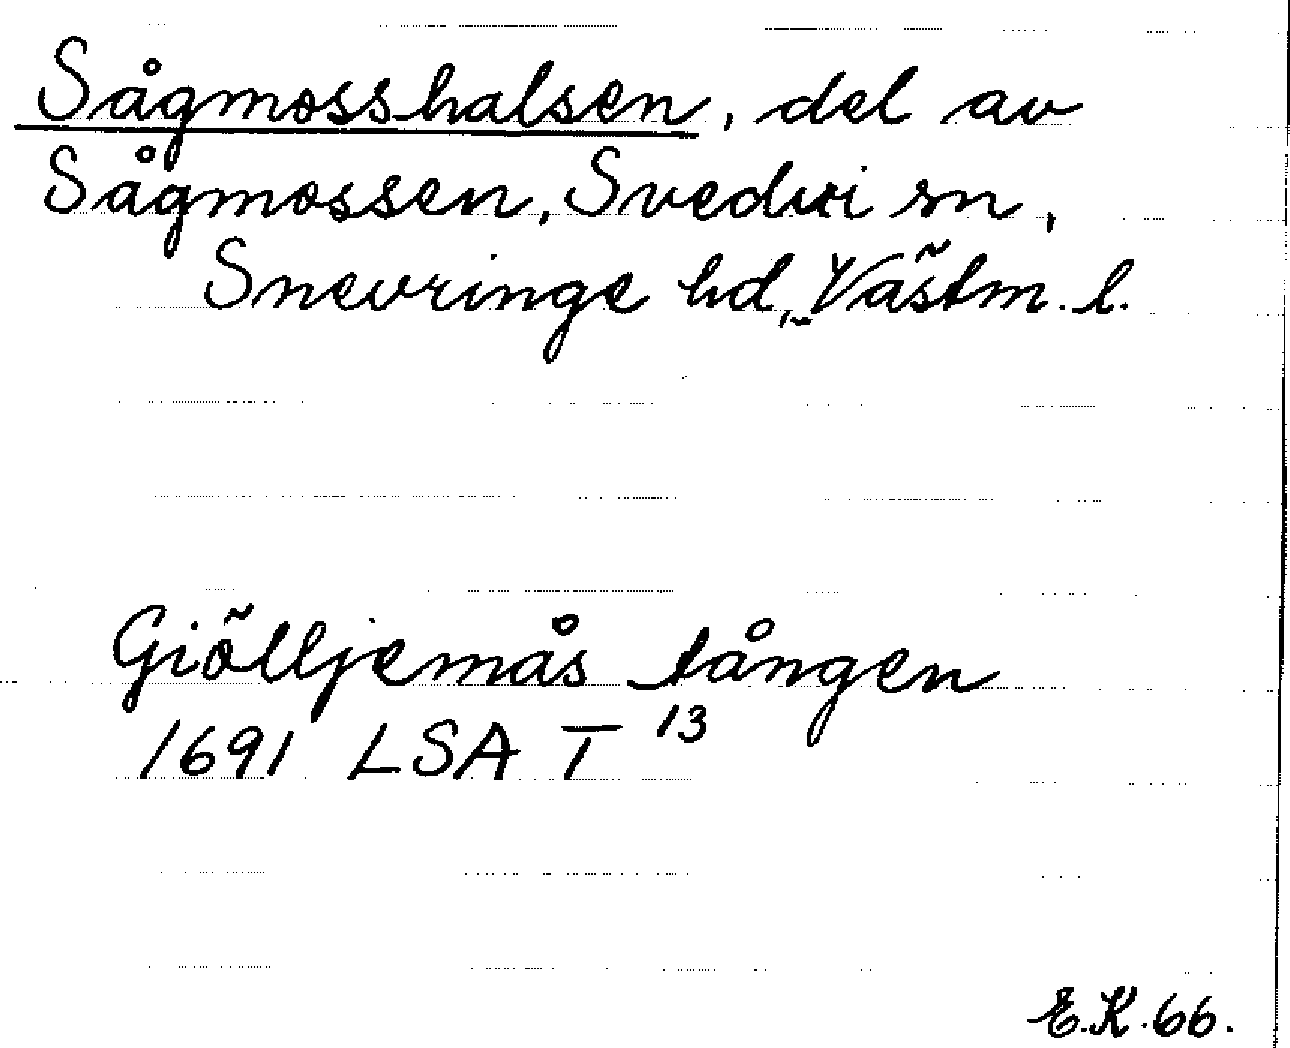 Sågmosshalsen, del av
Sågmossen, Svedvi sn,
Snevringe hd, Västm. l.
Giölljemås tången
1691 LSA T 13
E.K. 66.